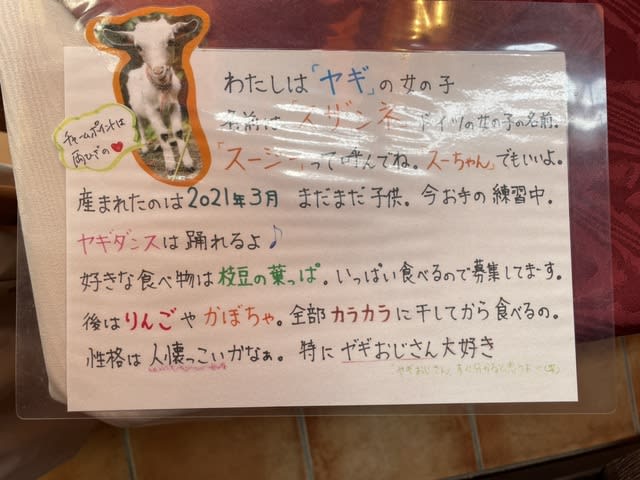 わたしは「ヤギ」の女の子
名前は「スザンネ」ドイツの女の子の名前。
「スージー」って呼んでね。スーちゃん」でもいいよ。
チャームポイントは
両ひざの♥
産まれたのは2021年3月 まだまだ子供。今お手の練習中。
ヤギダンスは踊れるよ♪
好きな食べ物は枝豆の葉っぱ。いっぱい食べるので募集してます。
後はりんごやかぼちゃ。全部カラカラに干してから食べるの。
性格は人懐っこいかなぁ。特にヤギおじさん大好き